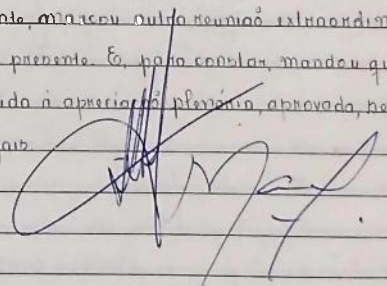 nto, marcou outra reunião extraordin
presente. E, para constar, mandou qu
ida à apreciação plenária, aprovada, se
ais.